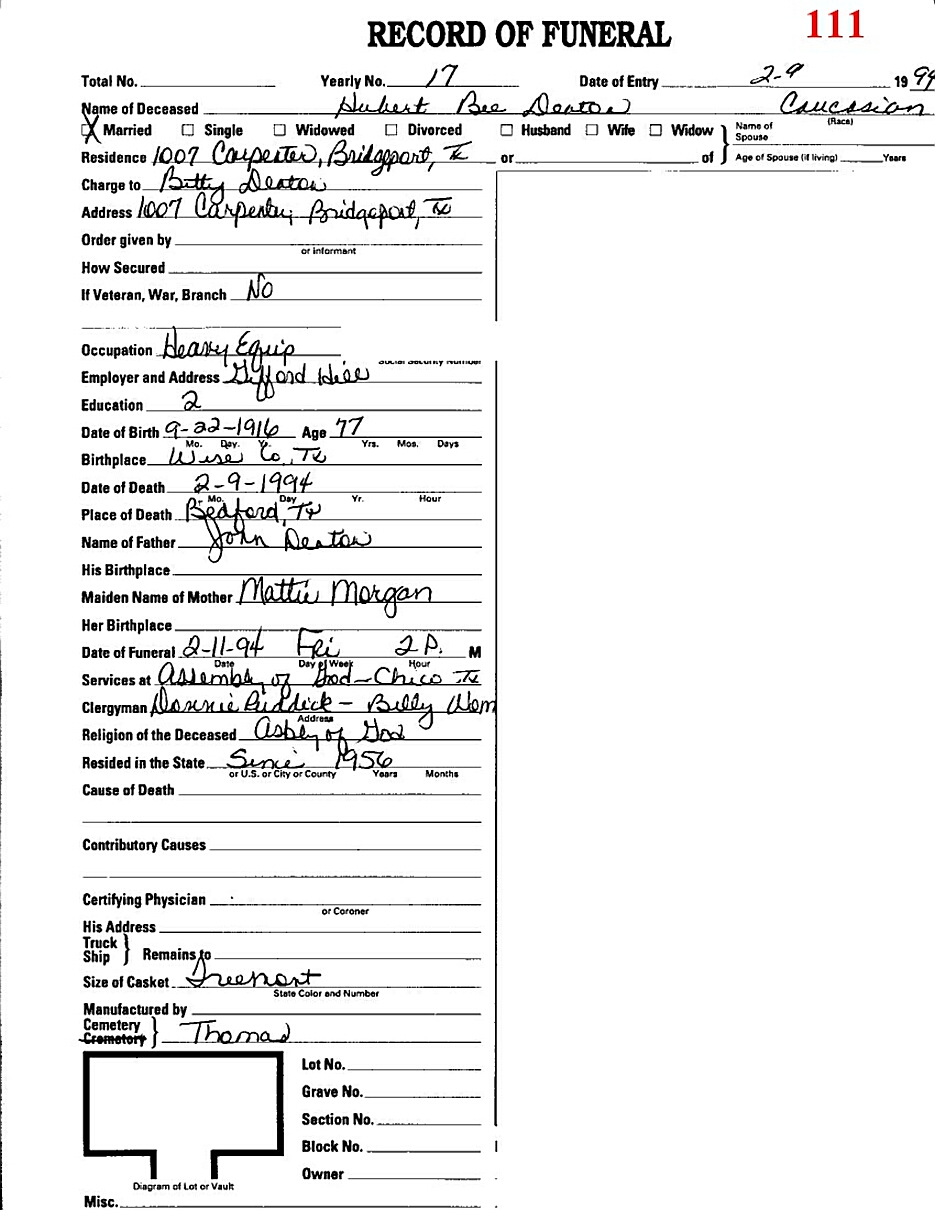 111
RECORD OF FUNERAL
Total No. Yearly No. 17 Date of Entry 2-9 1994
Name of Deceased Hubert Bee Deaton Caucasian
(Race)
X Married Single Widowed Divorced Husband Wife Widow Name of Spouse
Residence 1007 Carpenter, Bridgeport, Tx or of Age of Spouse (if living) Years
Charge to Betty Deaton
Address 1007 Carpenter, Bridgeport, Tx
Order given by
or informant
How Secured
If Veteran, War, Branch No
Occupation Heavy Equip
Social Security Number
Employer and Address Gifford Hill
Education 2
Date of Birth 9-22-1916 Age 77
Mo. Day. Yr. Yrs. Mos. Days
Birthplace Wise Co, Tx
Date of Death 2-9-1994
Mo. Day Yr. Hour
Place of Death Bedford, Tx
Name of Father John Deaton
His Birthplace
Maiden Name of Mother Mattie Morgan
Her Birthplace
Date of Funeral 2-11-94 Fri 2 P. M
Date Day of Week Hour
Services at Assembly of God - Chico Tx
Clergyman Donnie Ruddick - Billy
Address
Religion of the Deceased Asbly of God
Resided in the State Since 1956
or U.S. or City or County Years Months
Cause of Death
Contributory Causes
Certifying Physician
or Coroner
His Address
Truck
Ship } Remains to
Size of Casket Freeport
State Color and Number
Manufactured by
Cemetery
Crematory } Thomas
Lot No.
Grave No.
Section No.
Block No.
Owner
Diagram of Lot or Vault
Misc.